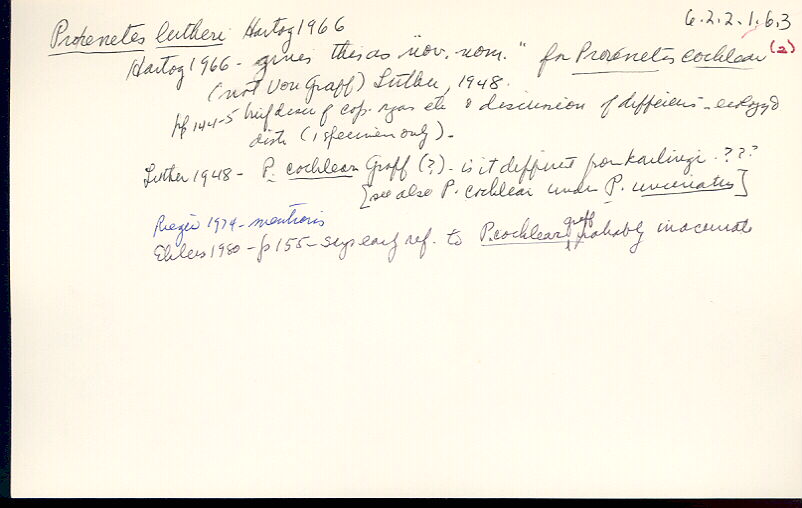 Proxenetes lutheri Hartog 1966 6.2.2.1.6.3
Hartog 1966 - gives this as "nov. nom." for Proxenetes cochlear (2)
(not Von Graff) Luther, 1948.
pp 144-5 brief descr of cop. organs etc & discussion of differens - ecology &
distr (1 specimen only) -
Luther 1948 - P. cochlear Graff (?) - is it different from karlingi ???
[see also P. cochlear under P. unciniatus]
Rieger 1974 - mentions
Ehlers 1980 - p 155 - says early ref. to P. cochlear Graff probably inaccurate